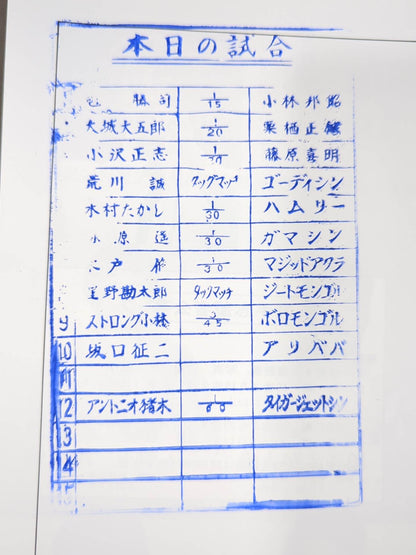 本日の試合
勝司 1/15 小林邦昭
大城大五郎 1/20 栗栖正伸
小沢正志 1/20 藤原喜明
荒川 誠 タッグマッチ ゴーディシン
木村たかし 1/30 ハムリー
小原 造 1/30 ガマシン
木戸 修 1/30 マジッドアクラ
星野勘太郎 タッグマッチ ジートモンゴル
9 ストロング小林 3/45 ボロモンゴル
10 坂口征二 アリババ
11
12 アントニオ猪木 1/60 タイガージェットシン
3
4